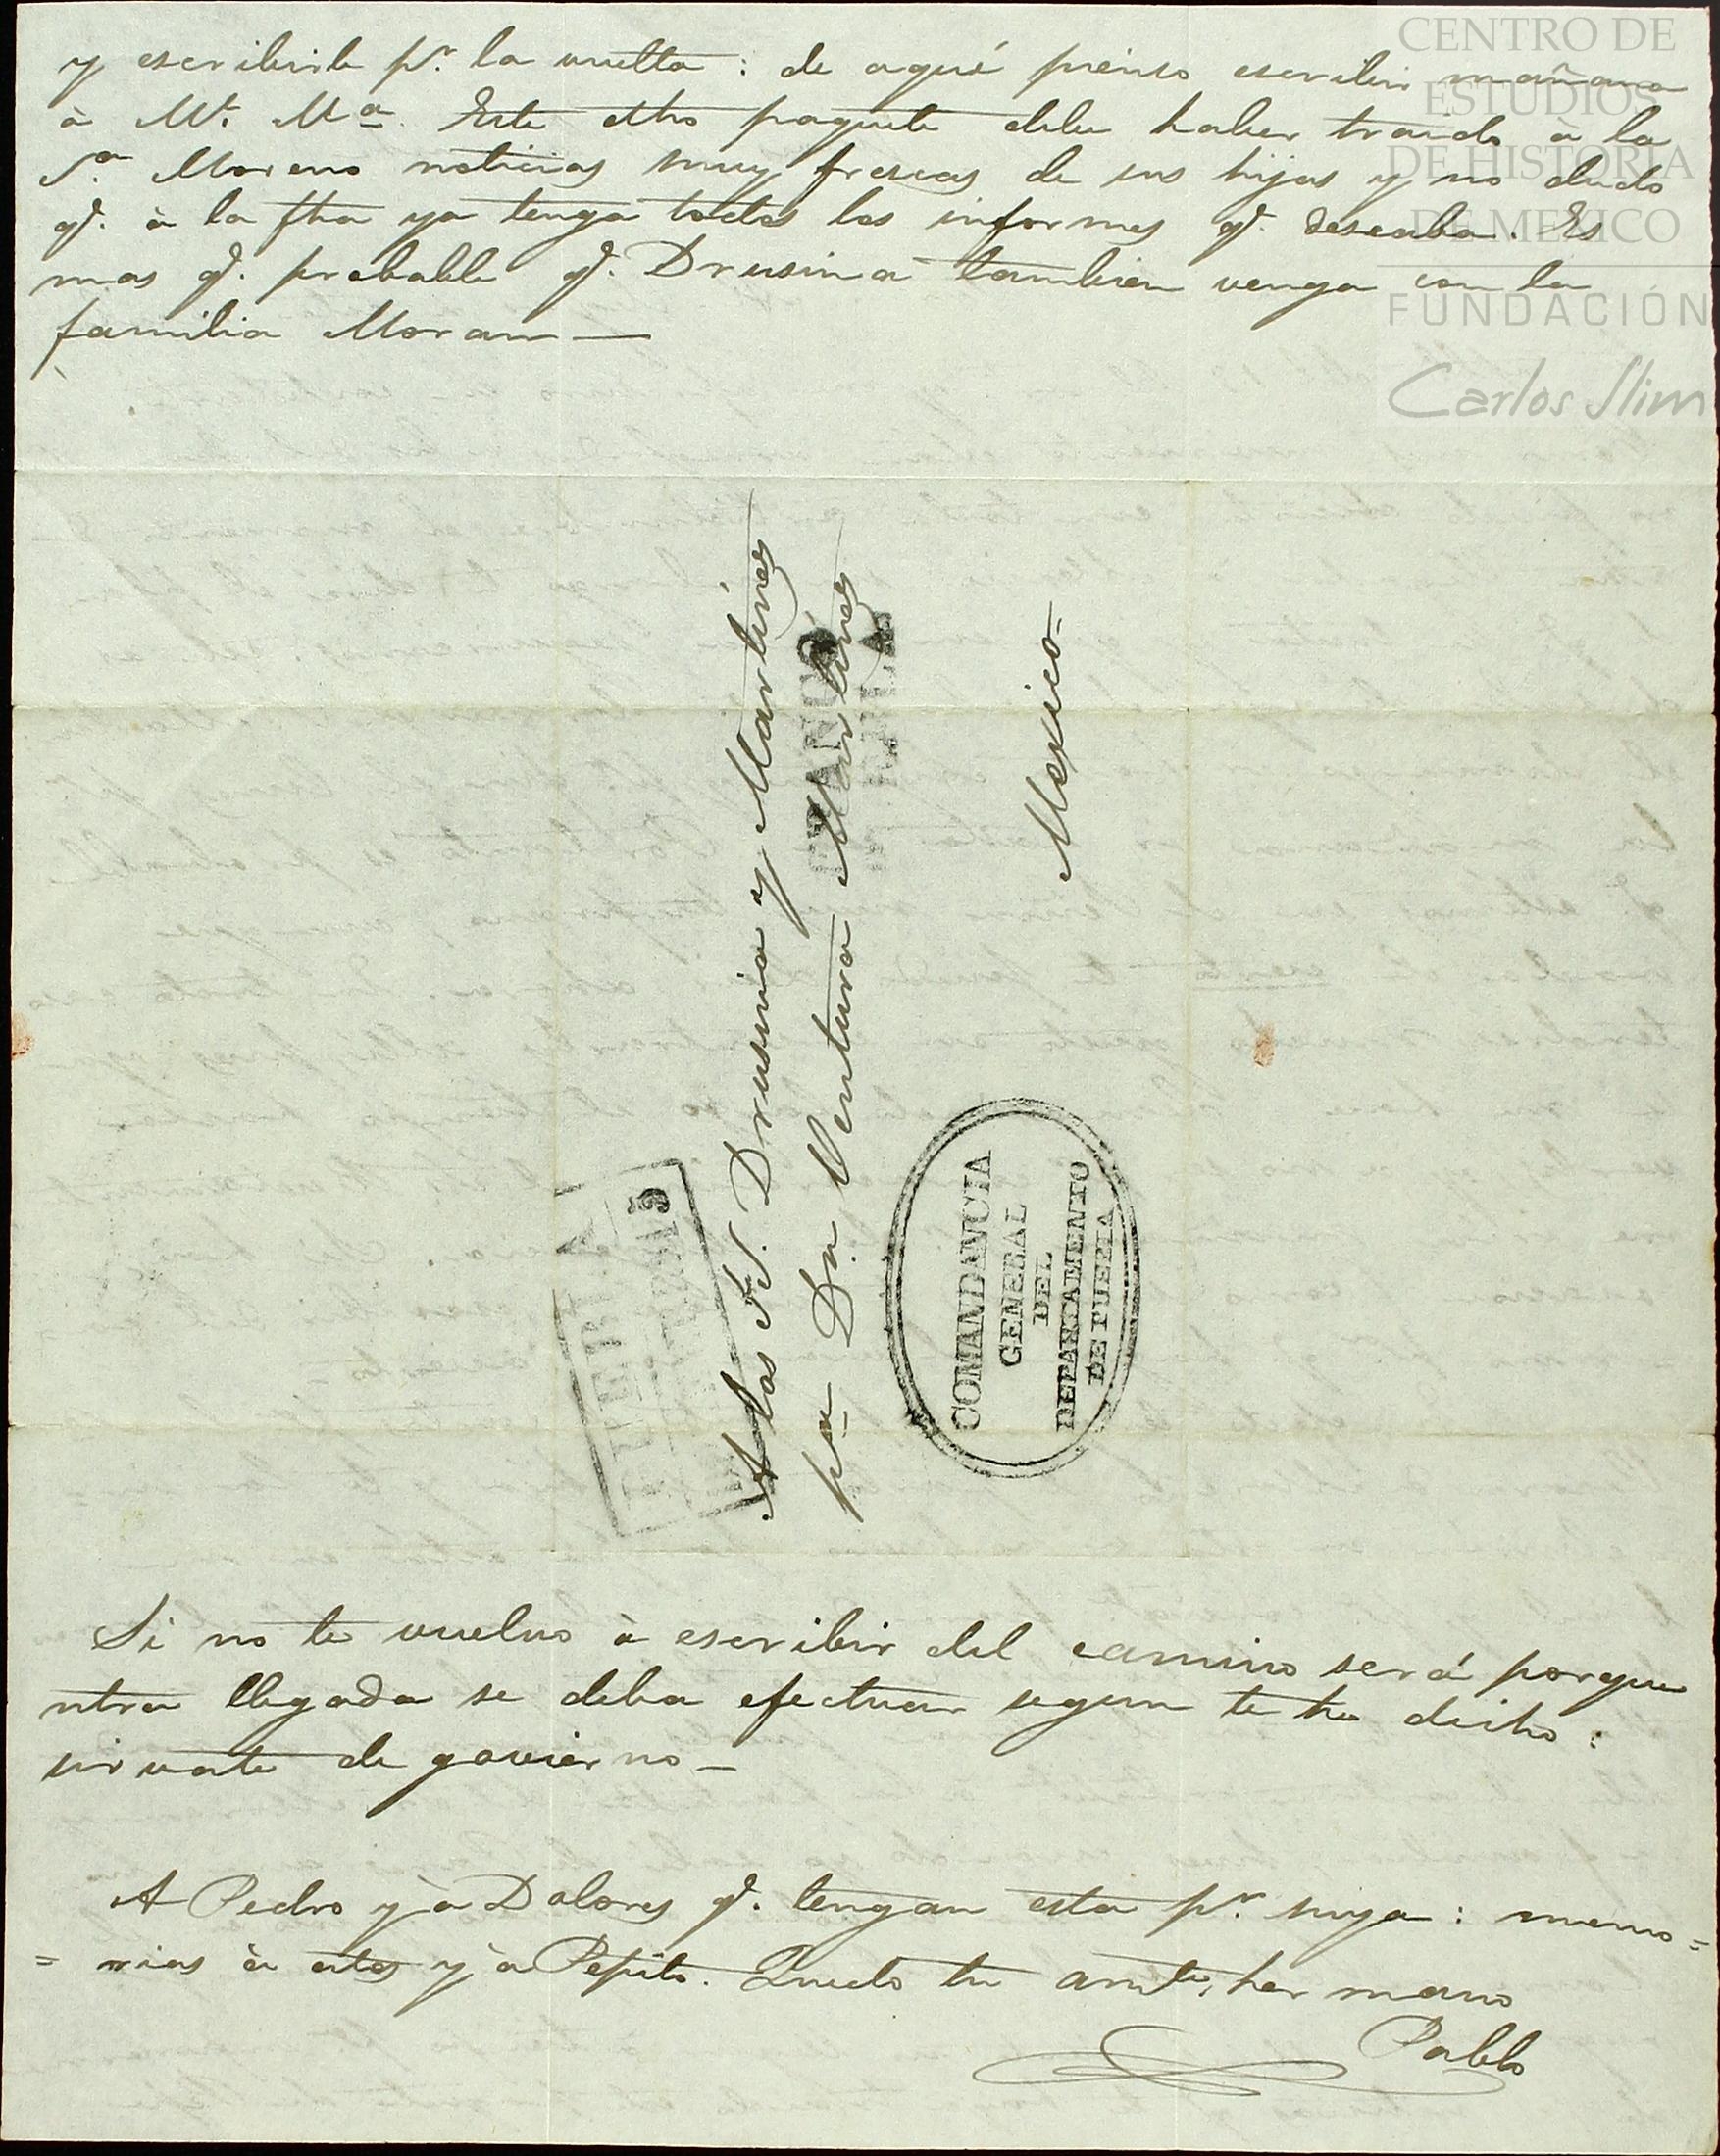 y escribirle pr. la vuelta : de aqui pienso escribir mañana
à Mr. Ma. Este dho paquete debe haber traido à la
Sa. Moreno noticias muy frescas de sus hijas y no dudo
q. à la fha ya tenga todos los informes q. deseaba. Es
mas q. probable q. Drusina tambien venga con la
familia Moran —
A los SS. Drusina y Martinez
pa Dn. Ventura Martinez
Mexico-
FRANCO
PUEBLA
COMANDANCIA
GENERAL
DEL
DEPARTAMENTO
DE PUEBLA
Si no te vuelvo à escribir del camino será porque
ntra llegada se deba efectuar segun te he dicho :
sirvate de govierno —
A Pedro y à Dolores q. tengan esta pr. suya : memo=
= rias à estos y à Pepito. Quedo tu amte. hermano
Pablo
CENTRO DE
ESTUDIOS
DE HISTORIA
DE MEXICO
FUNDACIÓN
Carlos Slim